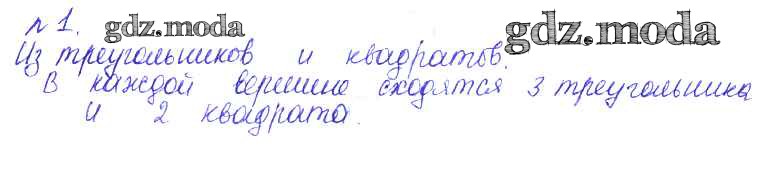 №1. gdz.moda gdz.moda
Из треугольников и квадратов.
В каждой вершине сходятся 3 треугольника
и 2 квадрата.